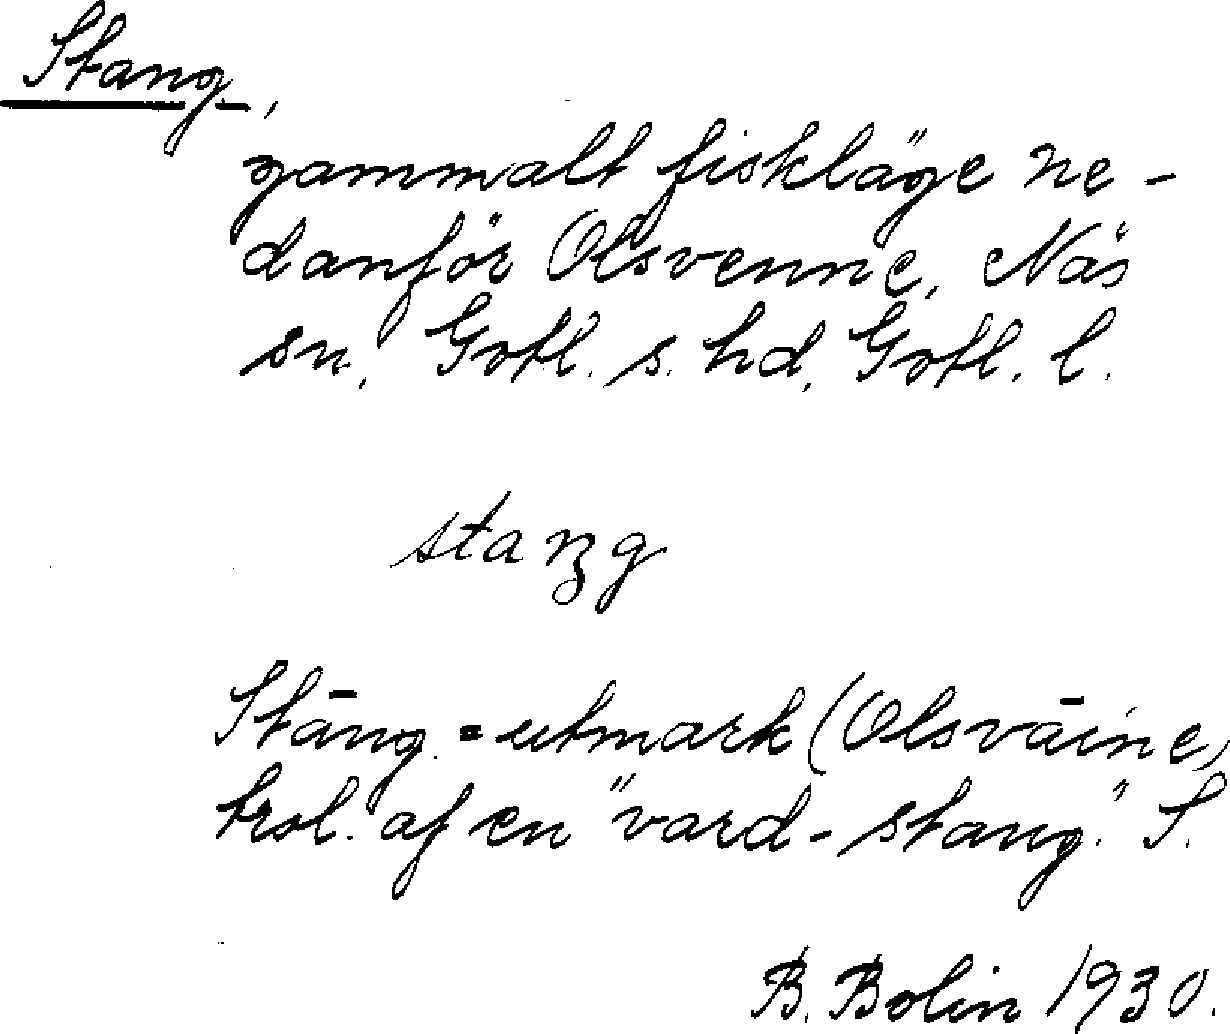 Stang,
gammalt fiskläge ne-
danför Olsvenne, Näs
sn, Gotl. s. hd, Gotl. l.
staŋg
Stāng = utmark (Olsvāine,
trol. af en "vard-stang." S.
B. Bolin 1930.